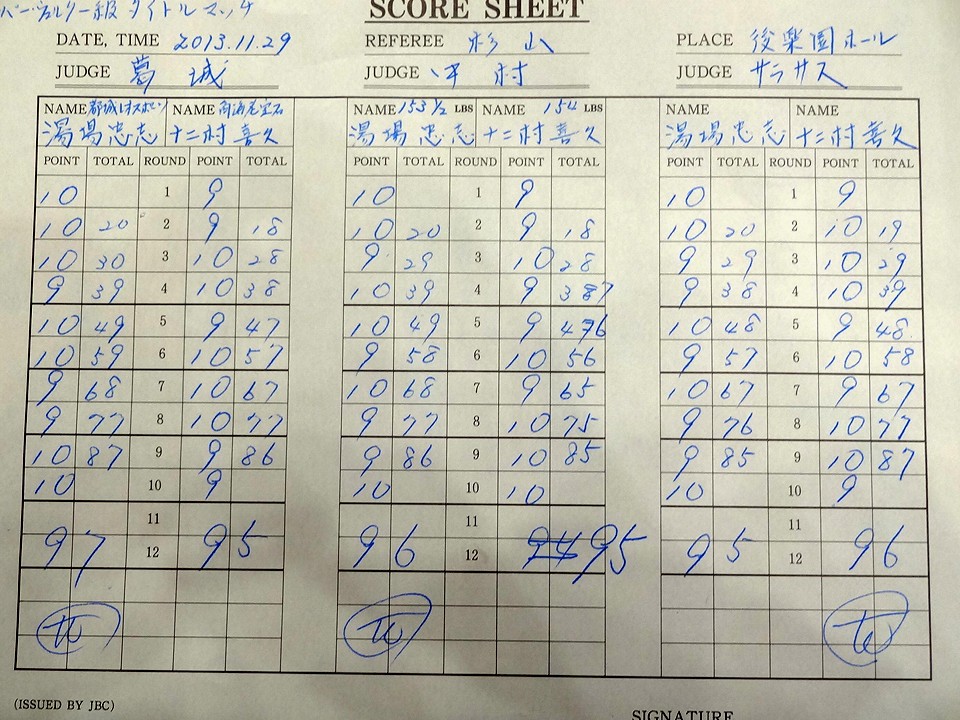 スーパーウェルター級タイトルマッチ
SCORE SHEET
DATE, TIME 2013.11.29 REFEREE 杉山 PLACE 後楽園ホール
JUDGE 葛城 JUDGE 中村 JUDGE サラサス
NAME NAME NAME 153 1/2 LBS NAME 154 LBS NAME NAME
湯場忠志 十二村喜久 湯場忠志 十二村喜久 湯場忠志 十二村喜久
POINT TOTAL ROUND POINT TOTAL POINT TOTAL ROUND POINT TOTAL POINT TOTAL ROUND POINT TOTAL
10 1 9 10 1 9 10 1 9
10 20 2 9 18 10 20 2 9 18 10 20 2 10 19
10 30 3 10 28 9 29 3 10 28 9 29 3 10 29
9 39 4 10 38 10 39 4 9 37 9 38 4 10 39
10 49 5 9 47 10 49 5 9 46 10 48 5 9 48
10 59 6 10 57 9 58 6 10 56 9 57 6 10 58
9 68 7 10 67 10 68 7 9 65 10 67 7 9 67
9 77 8 10 77 9 77 8 10 75 9 76 8 10 77
10 87 9 9 86 9 86 9 10 85 9 85 9 10 87
10 10 9 10 10 10 10 10 9
11 11 11
97 12 95 96 12 94 95 95 12 96
W W W
(ISSUED BY JBC) SIGNATURE